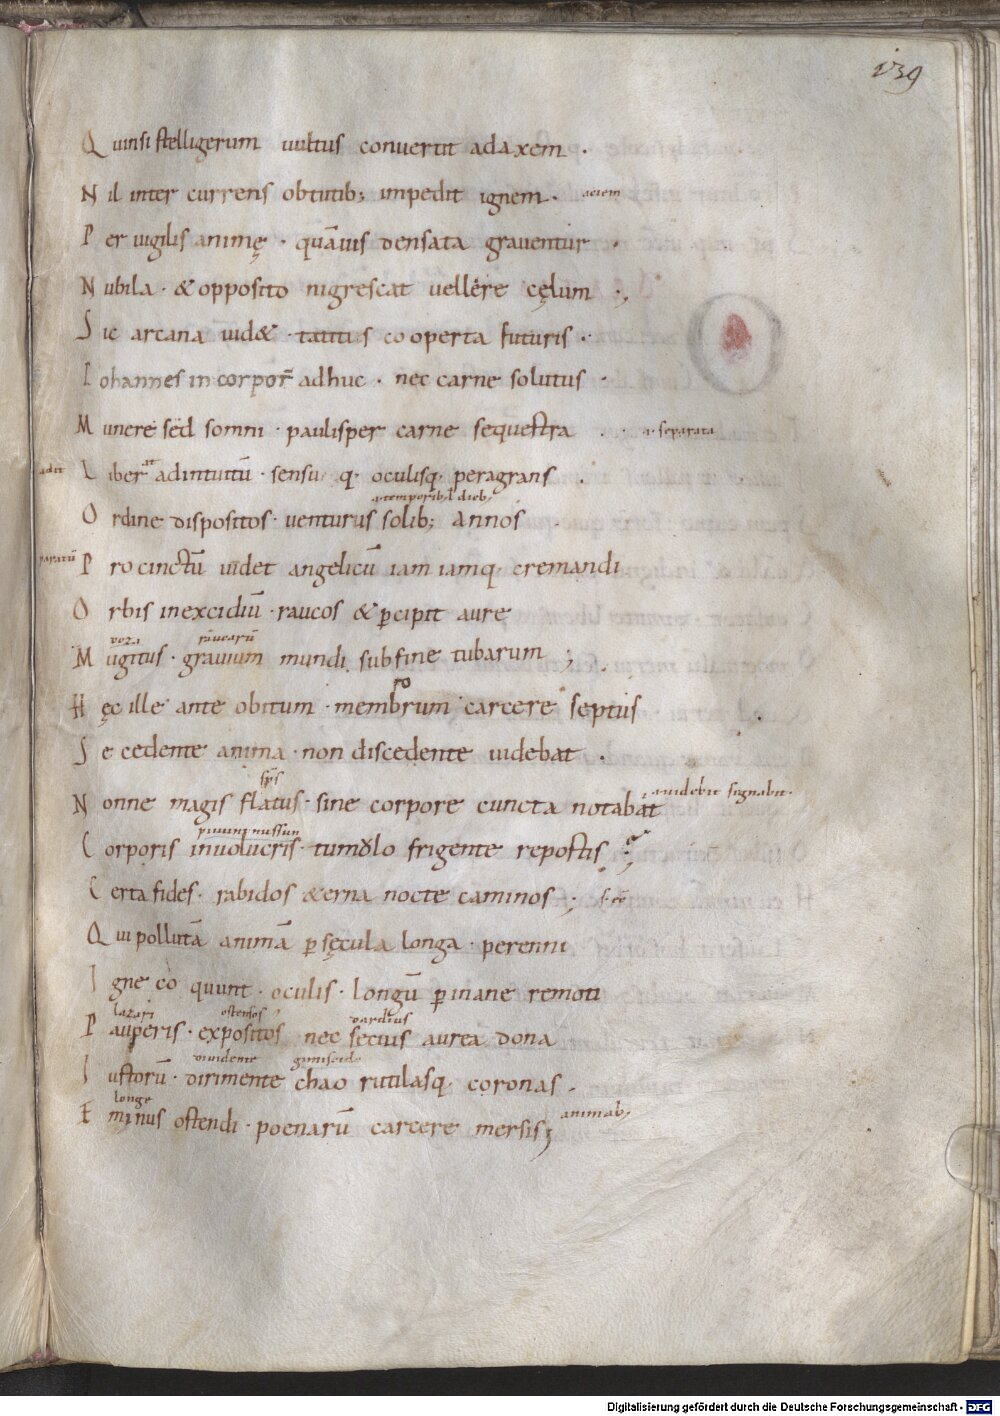 139
Quinsi stelligerum uultus conuertit adaxem ·
Nil inter currens obtutib; impedit ignem · aciem
Per uigilis animę · quãuis densata grauentur ·
Nubila · & opposito nigrescat uellere cęlum ·,
Sic arcana uid& · tantus cooperta futuris ·
Iohannes in corpor̃ adhuc · nec carne solutus ·
Munere sed somni · paulisper carne sequestra · · a separata
adit Liber at adintuitũ · sensu · q· oculisq· peragrans ·
a temporib; l dieb;
Ordine dispositos · uenturus solib; annos ·
paratũ Procinctũ uidet angelicũ iam iamq· cremandi
Orbis inexcidiũ · raucos & p̱cipit aure
Mugitus · grauium mundi subfine tubarum ;
ro
Hęc ille ante obitum · membrum carcere septus
Secedente anima · non discedente uidebat ·
sp̃s
Nonne magis flatus · sine corpore cuncta notabat · a uidebit signabit ·
Corporis inuolucris · tumulo frigente repostis ;
Certa fides · rabidos &erna nocte caminos ;
Qui pollutã animã p̱ sęcula longa · perenni
Igne co quunt · oculis · longũ p̱ inane remoti
lazari ostensos tardius
Pauperis · expositos nec secius aurea dona
diuidente
Iustorũ · dirimente chao rutilasq· coronas ·
longe animab;
Eminus ostendi · poenarũ carcere mersis;
Digitalisierung gefördert durch die Deutsche Forschungsgemeinschaft - DFG